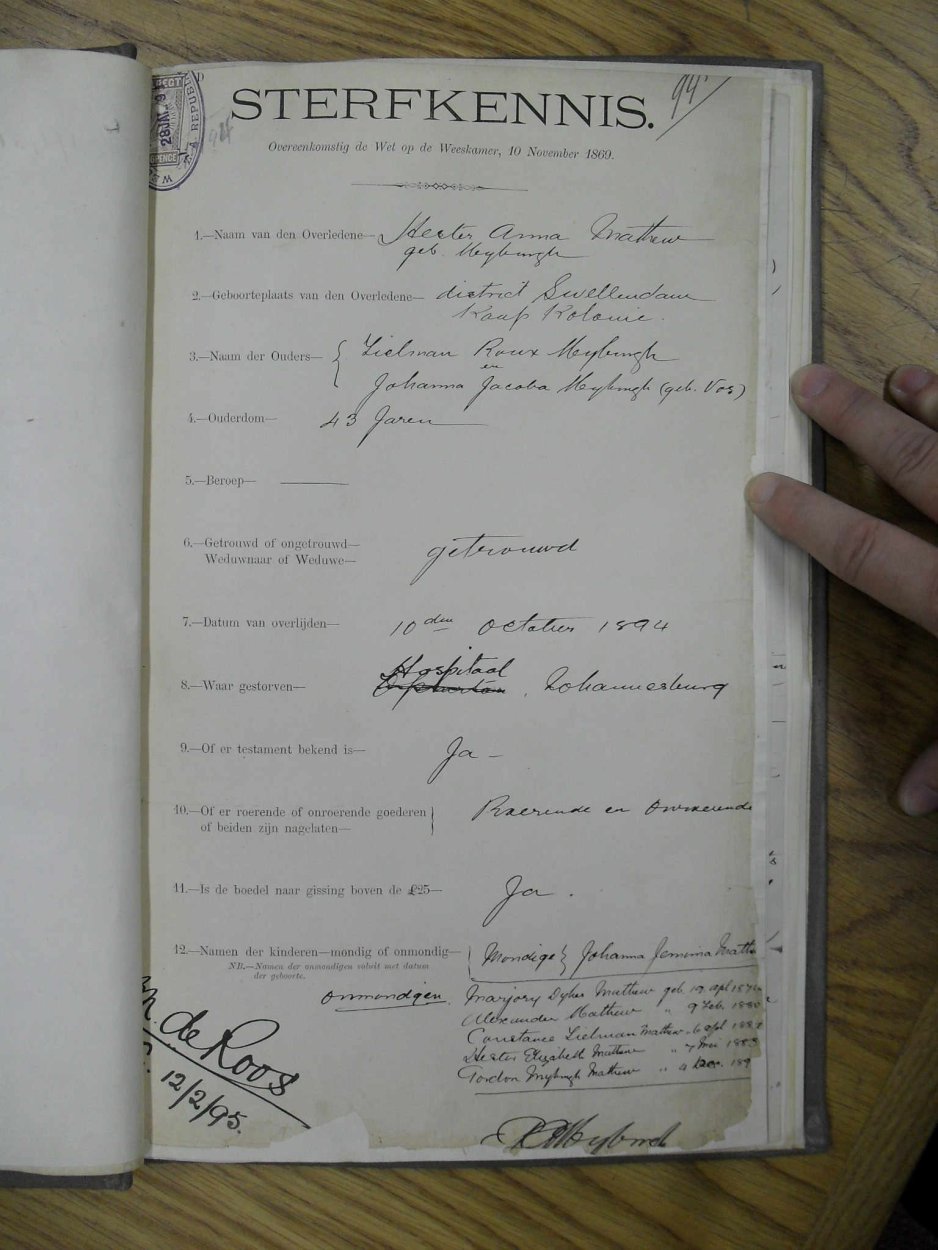 94
STERFKENNIS.
Overeenkomstig de Wet op de Weeskamer, 10 November 1869.
28 JAN 9
PENCE
REPUBL
1.—Naam van den Overledene— Hester Anna Mathew
geb. Meyburgh
2.—Geboorteplaats van den Overledene— district Swellendam
Kaap Kolonie.
3.—Naam der Ouders— { Tielman Roux Meyburgh
en
Johanna Jacoba Meyburgh (geb. Vos)
4.—Ouderdom— 43 Jaren
5.—Beroep—
6.—Getrouwd of ongetrouwd—
Weduwnaar of Weduwe— getrouwd
7.—Datum van overlijden— 10den October 1894
Hospitaal
8.—Waar gestorven— , Johannesburg
9.—Of er testament bekend is— Ja —
10.—Of er roerende of onroerende goederen } Roerende en onroerende
of beiden zijn nagelaten—
11.—Is de boedel naar gissing boven de £25— Ja .
12.—Namen der kinderen—mondig of onmondig— { Mondige } Johanna Jemima Math
NB.—Namen der onmondigen vooruit met datum
der geboorte.
onmondigen. Marjory Dykes Mathew geb. 19 apl 187
Alexander Mathew " 9 Feb. 1880
Constance Tielman Mathew " 6 apl 188
Hester Elizabeth Mathew " 7 Mei 1883
Gordon Meyburgh Mathew " 4 Dec. 189
de Roos
12/2/95.
Meyburgh